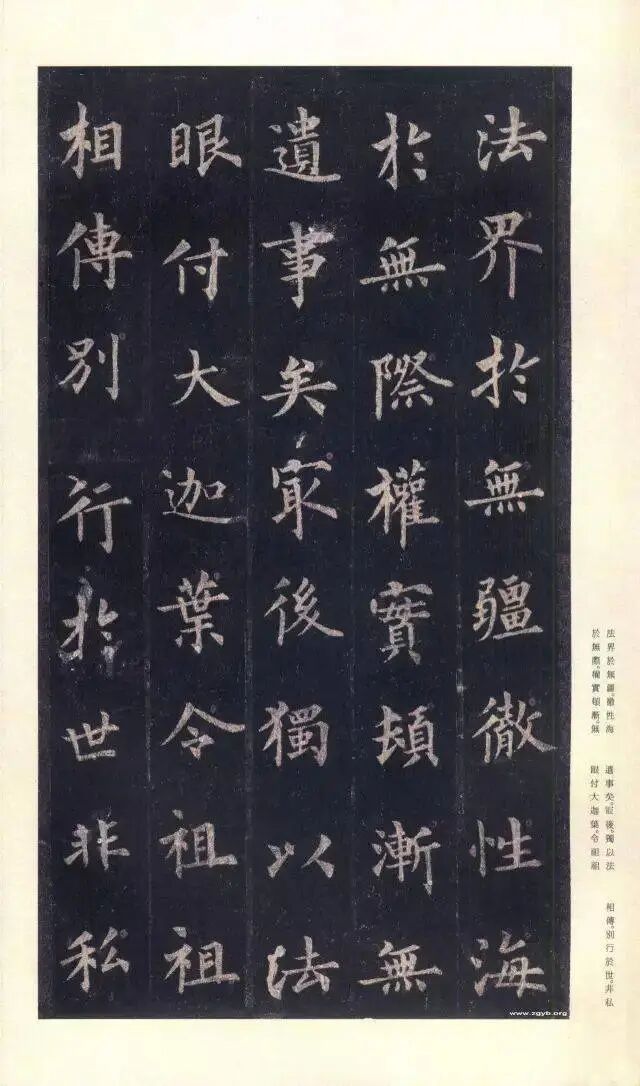 法界於無疆徹性海
於無際權實頓漸無
遺事矣冣後獨以法
眼付大迦葉令祖祖
相傳別行於世非私
法界於無疆。徹性海
於無際。權實頓漸。無
遺事矣。冣後。獨以法
眼付大迦葉。令祖祖
相傳。別行於世。非私
www.zgyb.org